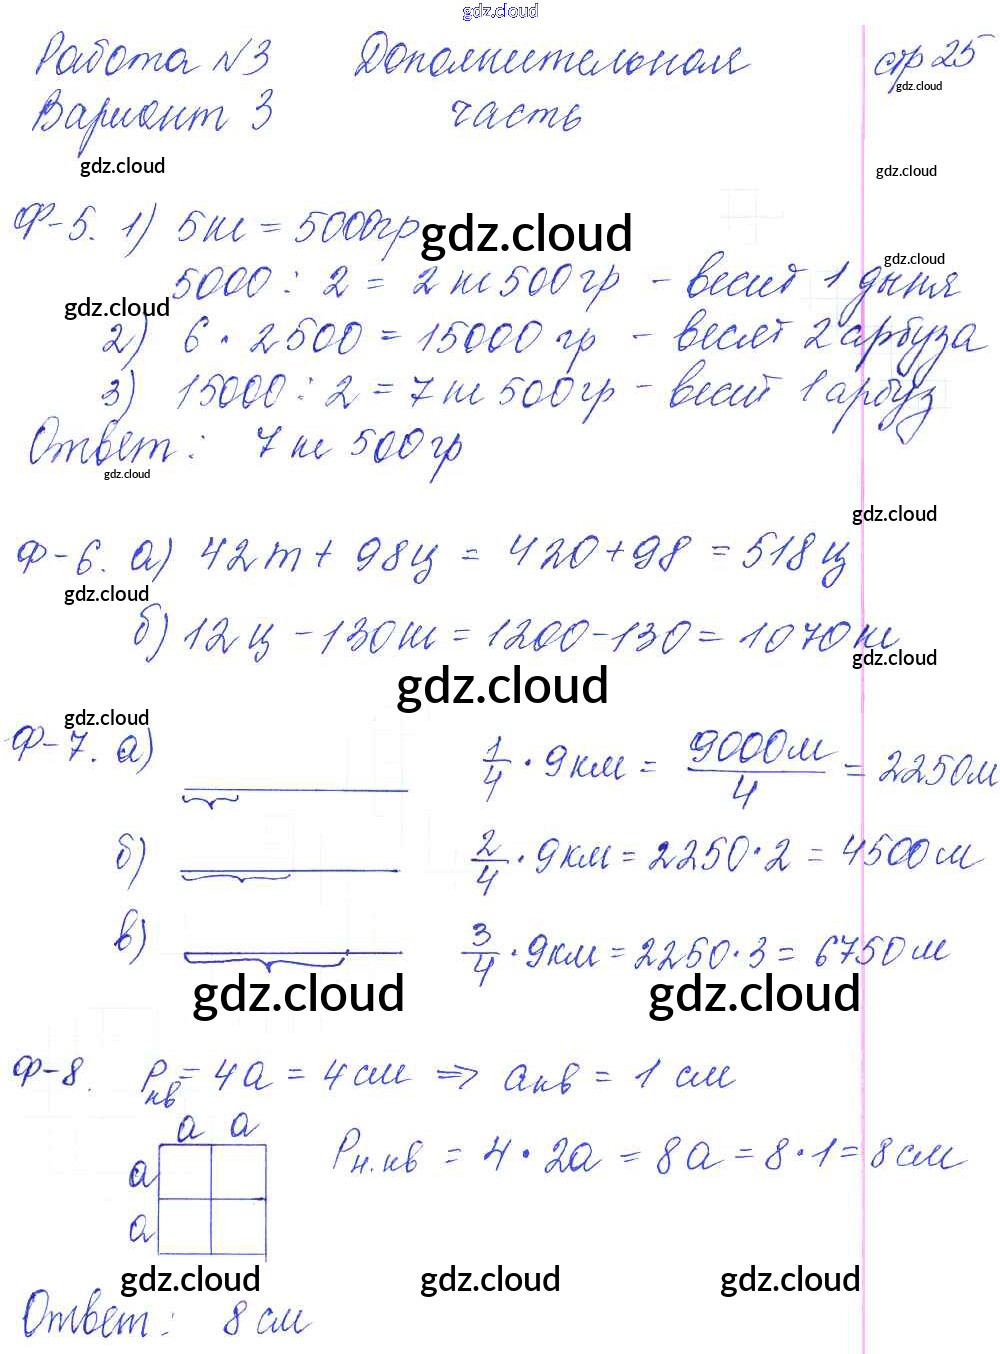 gdz.cloud
Работа №3 Дополнительная стр 25
gdz.cloud
Вариант 3 часть
gdz.cloud gdz.cloud
Ф-5. 1) 5кг = 5000гр gdz.cloud
gdz.cloud
5000 : 2 = 2 кг 500 гр - весит 1 дыня
gdz.cloud
2) 6 · 2500 = 15000 гр - весят 2 арбуза
3) 15000 : 2 = 7 кг 500 гр - весит 1 арбуз
Ответ: 7 кг 500 гр
gdz.cloud
gdz.cloud
Ф-6. а) 42т + 98ц = 420+98 = 518 ц
gdz.cloud
б) 12ц - 130кг = 1200-130 = 1070 кг
gdz.cloud
gdz.cloud
gdz.cloud
Ф-7. а) 1/4 · 9км = 9000м/4 = 2250м
б) 2/4 · 9км = 2250·2 = 4500м
в) 3/4 · 9км = 2250·3 = 6750м
gdz.cloud gdz.cloud
Ф-8. Pкв = 4a = 4см ⇒ aкв = 1 см
a a
a Pн.кв = 4 · 2a = 8a = 8·1 = 8см
a
gdz.cloud gdz.cloud gdz.cloud
Ответ: 8 см